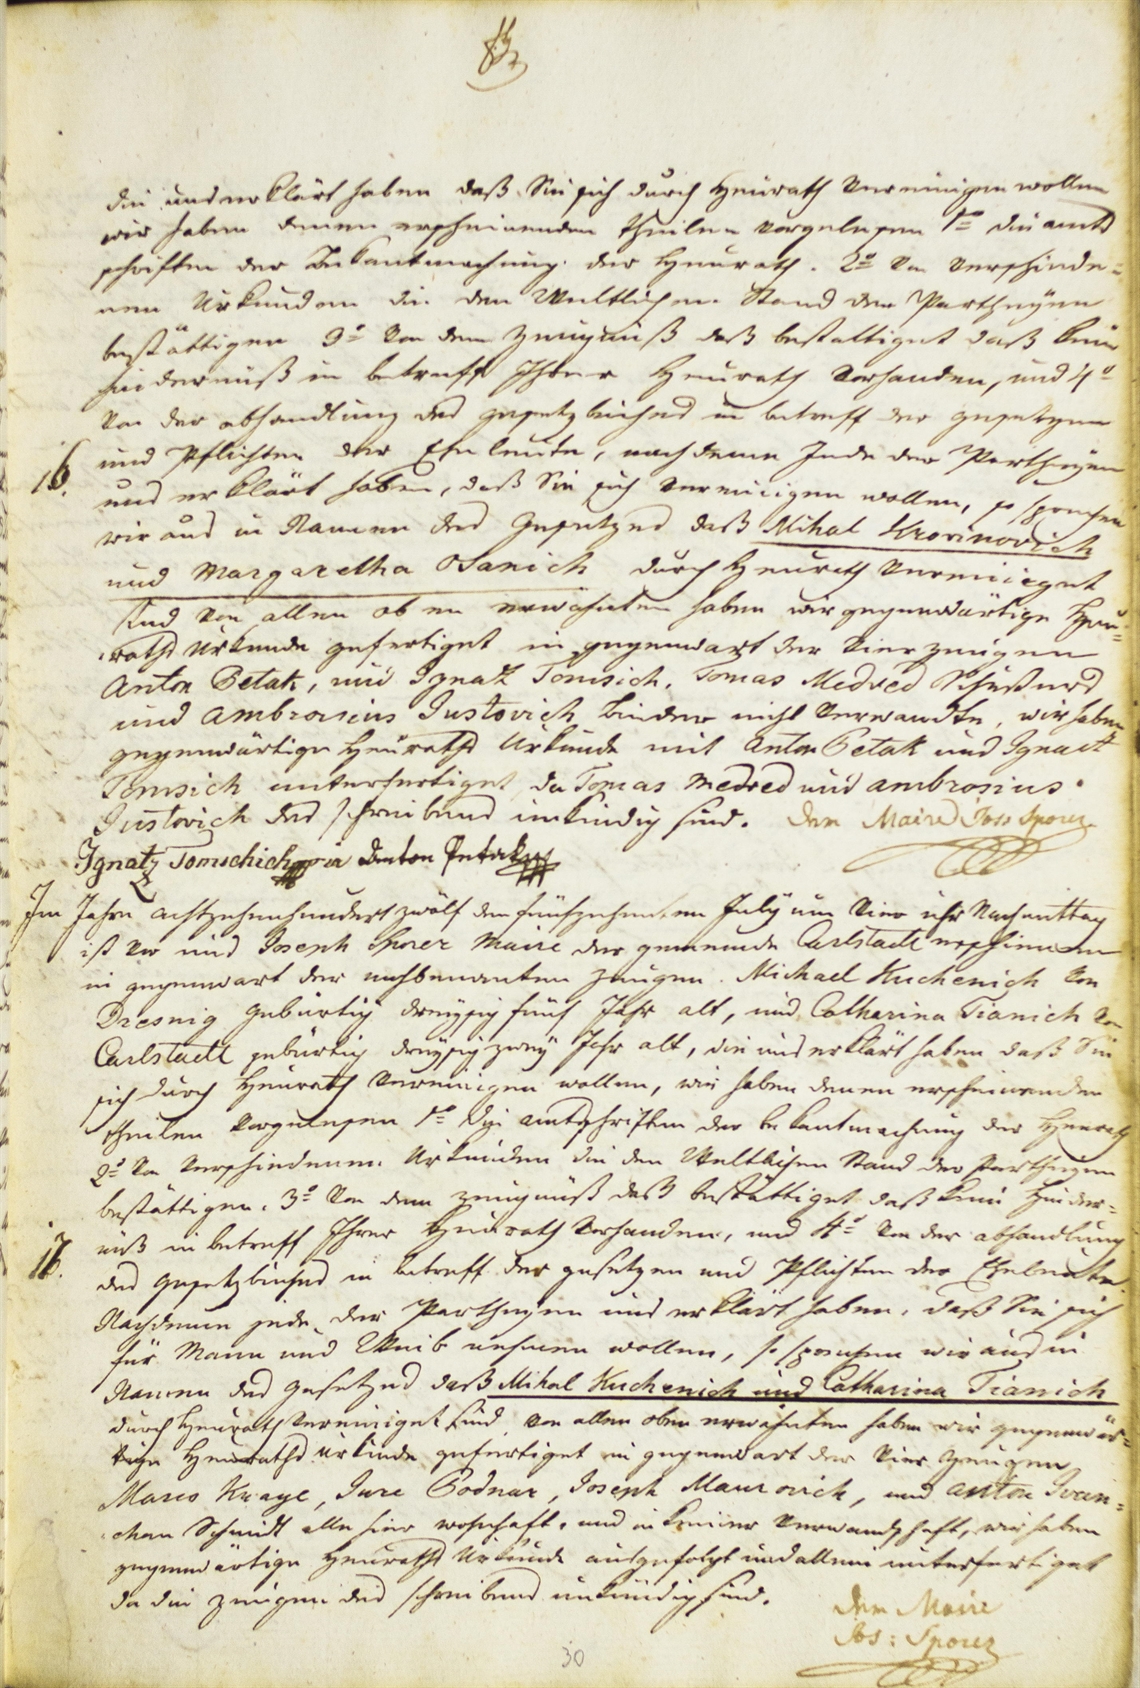 die uns erklärt haben daß Sie sich durch Heurath Vereinigen wollen
wir haben denen erscheinenden theilen vorgelesen 1mo die amts
schriften der Bekantmachung der Heurath. 2o Von Verschinde=
nen Urkunden die den Weltlichen Stand der Partheyen
bestättigen 3o Von dem Zeugnuß daß bestattiget daß kein
hindernuß in betreff Ihrer Heurath Vorhanden, und 4o
Von der abhandlung des gesetzbuches in betreff der gesetzen
und Pflichten der Eheleute, nachdeme Jede der Partheyen
16.
uns erklärt haben, daß Sie sich Vereinigen wollen, so sprechen
wir aus in Namen des Gesetzes daß Mihal Krovinovich
und Margaretha Osanich durch Heurath Vereiniget
sind Von allen oben erwähnten haben wir gegenwärtige Heu=
raths Urkunde gefertiget in gegenwart der Vier zeugen
Anton Petak, und Ignatz Tomsich, Tomas Medved
und Ambrosius Justovich Binder nicht Verwandte, wir haben
gegenwärtige Heuraths Urkunde mit Anton Petak und Ignatz
Tomsich unterfertiget da Tomas Medved und Ambrosius
Justovich des schreibens unkündig sind. Der Maire Jos Sporer
Ignatz Tomschich Anton Petak
Im Jahre achtzehenhundert zwölf den fünfzehenten July um Vier uhr Nachmittag
ist vor uns Joseph Sporer Maire der gemeinde Carlstadt erschienen
in gegenwart der nachbenanten zeugen. Michael Kuchenich Von
Dresnig gebürtig dreysig fünf Jahr alt, und Catharina Tianich Von
Carlstadt gebürtig dreysig zwey Jahr alt, die uns erklärt haben daß Sie
sich durch Heurath Vereinigen wollen, wir haben denen erscheinenden
theilen Vorgelesen 1mo die amtschriften der bekantmachung der Heurath
2o Von Verschiedenen Urkunden die den Weltlichen Stand der Partheyen
bestättigen. 3o Von dem zeugnuß daß bestättiget daß kein Hinder=
nuß in betreff Ihrer Heurath Vorhanden, und 4o Von der abhandlung
17.
des gesetzbuches in betreff der gesetzen und Pflichten der Eheleute.
Nachdeme jede der Partheyen uns erklärt haben, daß Sie sich
für Mann und Weib nehmen wollen, so sprechen wir aus in
Namen des gesetzes daß Mihal Kuchenich und Catharina Tianich
durch Heurath Vereiniget sind, Von allen oben erwähnten haben wir gegenwär=
tige Heuraths Urkunde gefertiget in gegenwart der Vier Zeugen
Marco Kraye, Jure Bodnar, Joseph Maurovich, und Anton Ivan=
chan Schmidt alle hier wohnhaft, und in keiner Verwandschaft, wir haben
gegenwärtige Heuraths Urkunde ausgefolgt und allein unterfertiget
da die zeugen des schreibens unkündig sind.
Der Maire
Jos: Sporer
30